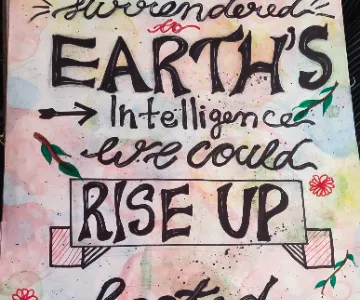 surrendered
to
EARTH'S
Intelligence
we could
RISE UP
Rooted